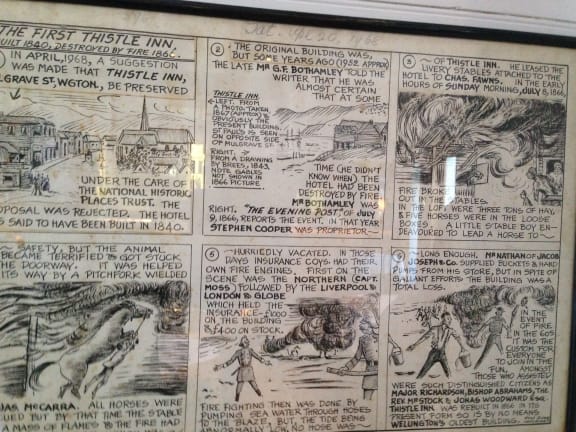 Sat. Apl 20, 1968
THE FIRST THISTLE INN.
BUILT 1840, DESTROYED BY FIRE 1866.
IN APRIL, 1968, A SUGGESTION
WAS MADE THAT THISTLE INN,
MULGRAVE ST, WGTON, BE PRESERVED
UNDER THE CARE OF
THE NATIONAL HISTORIC
PLACES TRUST. THE
PROPOSAL WAS REJECTED. THE HOTEL
IS SAID TO HAVE BEEN BUILT IN 1840.
② THE ORIGINAL BUILDING WAS,
BUT SOME YEARS AGO (1952 APPROX)
THE LATE MR G.F. BOTHAMLEY TOLD THE
WRITER THAT HE WAS
ALMOST CERTAIN
THAT AT SOME
THISTLE INN.
LEFT. FROM
A PHOTO. TAKEN
1867 (APPROX) &
OBVIOUSLY THE
PRESENT BUILDING.
ST PAULS IS SEEN
ON OPPOSITE SIDE
OF MULGRAVE ST
RIGHT.
FROM A DRAWING
BY BREES, 1843.
NOTE GABLES
NOT SHOWN IN
1866 PICTURE
TIME (HE DIDN'T
KNOW WHEN) THE
HOTEL HAD BEEN
DESTROYED BY FIRE
MR BOTHAMLEY WAS
RIGHT. "THE EVENING POST," OF JULY
9, 1866, REPORTS THE EVENT. IN THAT YEAR
STEPHEN COOPER WAS PROPRIETOR~
③ ~ OF THISTLE INN. HE LEASED THE
LIVERY STABLES ATTACHED TO THE
HOTEL TO CHAS. FAWNS. IN THE EARLY
HOURS OF SUNDAY MORNING, JULY 8, 1866
FIRE BROKE
OUT IN THE STABLES.
IN THE LOFT WERE THREE TONS OF HAY,
& FIVE HORSES WERE IN THE LOOSE
BOXES. A LITTLE STABLE BOY EN-
DEAVORED TO LEAD A HORSE TO ~
SAFETY, BUT THE ANIMAL
BECAME TERRIFIED & GOT STUCK
THE DOORWAY. IT WAS HELPED
ITS WAY BY A PITCHFORK WIELDED
JAS. McCARRA. ALL HORSES WERE
BY THAT TIME THE STABLE
A MASS OF FLAMES & THE FIRE HAD
⑤ ~ HURRIEDLY VACATED. IN THOSE
DAYS INSURANCE COYS. HAD THEIR
OWN FIRE ENGINES. FIRST ON THE
SCENE WAS THE NORTHERN (CAPT.
MOSS) FOLLOWED BY THE LIVERPOOL &
LONDON & GLOBE
WHICH HELD THE
INSURANCE~£1000
ON THE BUILDING
& £400 ON STOCK.
FIRE FIGHTING THEN WAS DONE BY
PUMPING SEA WATER THROUGH HOSES
TO THE BLAZE, BUT, THE TIDE BEING
HOSE WAS~
⑥ ~LONG ENOUGH. MR NATHAN OF JACOB
JOSEPH & CO. SUPPLIED BUCKETS & HAND
PUMPS FROM HIS STORE, BUT IN SPITE OF
GALLANT EFFORTS THE BUILDING WAS A
TOTAL LOSS.
IN THE
EVENT
OF FIRE
IN THE 60S
IT WAS THE
CUSTOM FOR
EVERYONE
TO JOIN IN THE
FUN. AMONGST
THOSE WHO ASSISTED
WERE SUCH DISTINGUISHED CITIZENS AS
MAJOR RICHARDSON, BISHOP ABRAHAMS, THE
REV. MR STOCK & JONAS WOODWARD ESQ.
THISTLE INN WAS REBUILT IN 1866 IN ITS
PRESENT FORM SO IS BY NO MEANS
WELLINGTON'S OLDEST BUILDING.